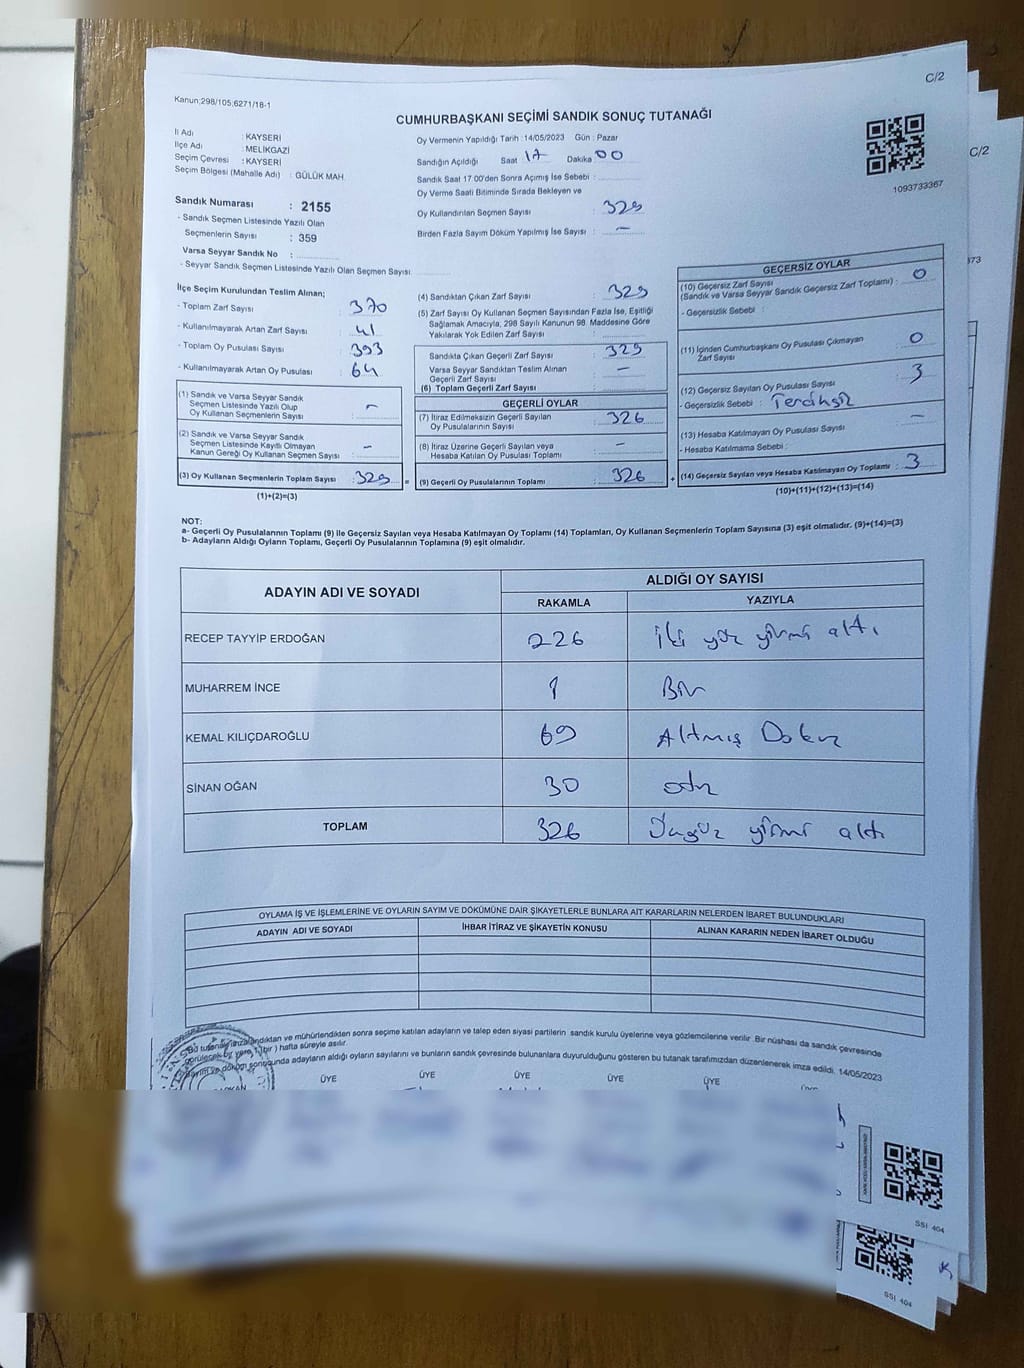 C/2
Kanun;298/105;6271/18-1
CUMHURBAŞKANI SEÇİMİ SANDIK SONUÇ TUTANAĞI
İl Adı : KAYSERİ
İlçe Adı : MELİKGAZİ
Seçim Çevresi : KAYSERİ
Seçim Bölgesi (Mahalle Adı) : GÜLÜK MAH.
Sandık Numarası : 2155
- Sandık Seçmen Listesinde Yazılı Olan
Seçmenlerin Sayısı : 359
Varsa Seyyar Sandık No :
- Seyyar Sandık Seçmen Listesinde Yazılı Olan Seçmen Sayısı
Oy Vermenin Yapıldığı Tarih : 14/05/2023 Gün : Pazar
Sandığın Açıldığı Saat 17 Dakika 00
Sandık Saat 17:00'den Sonra Açımış İse Sebebi :
Oy Verme Saati Bitiminde Sırada Bekleyen ve
Oy Kullandırılan Seçmen Sayısı : 329
Birden Fazla Sayım Döküm Yapılmış İse Sayısı : —
1093733367
C/2
373
İlçe Seçim Kurulundan Teslim Alınan;
- Toplam Zarf Sayısı : 370
- Kullanılmayarak Artan Zarf Sayısı : 41
- Toplam Oy Pusulası Sayısı : 393
- Kullanılmayarak Artan Oy Pusulası : 64
(1) Sandık ve Varsa Seyyar Sandık
Seçmen Listesinde Yazılı Olup
Oy Kullanan Seçmenlerin Sayısı : —
(2) Sandık ve Varsa Seyyar Sandık
Seçmen Listesinde Kayıtlı Olmayan
Kanun Gereği Oy Kullanan Seçmen Sayısı : —
(3) Oy Kullanan Seçmenlerin Toplam Sayısı : 329 =
(1)+(2)=(3)
(4) Sandıktan Çıkan Zarf Sayısı : 329
(5) Zarf Sayısı Oy Kullanan Seçmen Sayısından Fazla İse, Eşitliği
Sağlamak Amacıyla, 298 Sayılı Kanunun 98. Maddesine Göre
Yakılarak Yok Edilen Zarf Sayısı :
Sandıkta Çıkan Geçerli Zarf Sayısı : 329
Varsa Seyyar Sandıktan Teslim Alınan
Geçerli Zarf Sayısı : —
(6) Toplam Geçerli Zarf Sayısı :
GEÇERLİ OYLAR
(7) İtiraz Edilmeksizin Geçerli Sayılan
Oy Pusulalarının Sayısı : 326
(8) İtiraz Üzerine Geçerli Sayılan veya
Hesaba Katılan Oy Pusulası Toplamı : —
(9) Geçerli Oy Pusulalarının Toplamı : 326 +
GEÇERSİZ OYLAR
(10) Geçersiz Zarf Sayısı
(Sandık ve Varsa Seyyar Sandık Geçersiz Zarf Toplamı) : 0
- Geçersizlik Sebebi :
(11) İçinden Cumhurbaşkanı Oy Pusulası Çıkmayan
Zarf Sayısı : 0
(12) Geçersiz Sayılan Oy Pusulası Sayısı : 3
- Geçersizlik Sebebi : Tercihsiz
(13) Hesaba Katılmayan Oy Pusulası Sayısı : —
- Hesaba Katılmama Sebebi :
(14) Geçersiz Sayılan veya Hesaba Katılmayan Oy Toplamı : 3
(10)+(11)+(12)+(13)=(14)
NOT:
a- Geçerli Oy Pusulalarının Toplamı (9) ile Geçersiz Sayılan veya Hesaba Katılmayan Oy Toplamı (14) Toplamları, Oy Kullanan Seçmenlerin Toplam Sayısına (3) eşit olmalıdır. (9)+(14)=(3)
b- Adayların Aldığı Oyların Toplamı, Geçerli Oy Pusulalarının Toplamına (9) eşit olmalıdır.
ADAYIN ADI VE SOYADI ALDIĞI OY SAYISI
RAKAMLA YAZIYLA
RECEP TAYYİP ERDOĞAN 226 İki yüz yirmi altı
MUHARREM İNCE 1 Bir
KEMAL KILIÇDAROĞLU 69 Altmış Dokuz
SİNAN OĞAN 30 otuz
TOPLAM 326 Üçyüz yirmi altı
OYLAMA İŞ VE İŞLEMLERİNE VE OYLARIN SAYIM VE DÖKÜMÜNE DAİR ŞİKAYETLERLE BUNLARA AİT KARARLARIN NELERDEN İBARET BULUNDUKLARI
ADAYIN ADI VE SOYADI İHBAR İTİRAZ VE ŞİKAYETİN KONUSU ALINAN KARARIN NEDEN İBARET OLDUĞU
Bu tutanak imzalandıktan ve mühürlendikten sonra seçime katılan adayların ve talep eden siyasi partilerin sandık kurulu üyelerine veya gözlemcilerine verilir. Bir nüshası da sandık çevresinde
görülecek bir yere 1 (bir) hafta süreyle asılır.
Sayım ve döküm sonucunda adayların aldığı oyların sayılarını ve bunların sandık çevresinde bulunanlara duyurulduğunu gösteren bu tutanak tarafımızdan düzenlenerek imza edildi. 14/05/2023
ÜYE ÜYE ÜYE ÜYE ÜYE
SSI 404
SSI 404